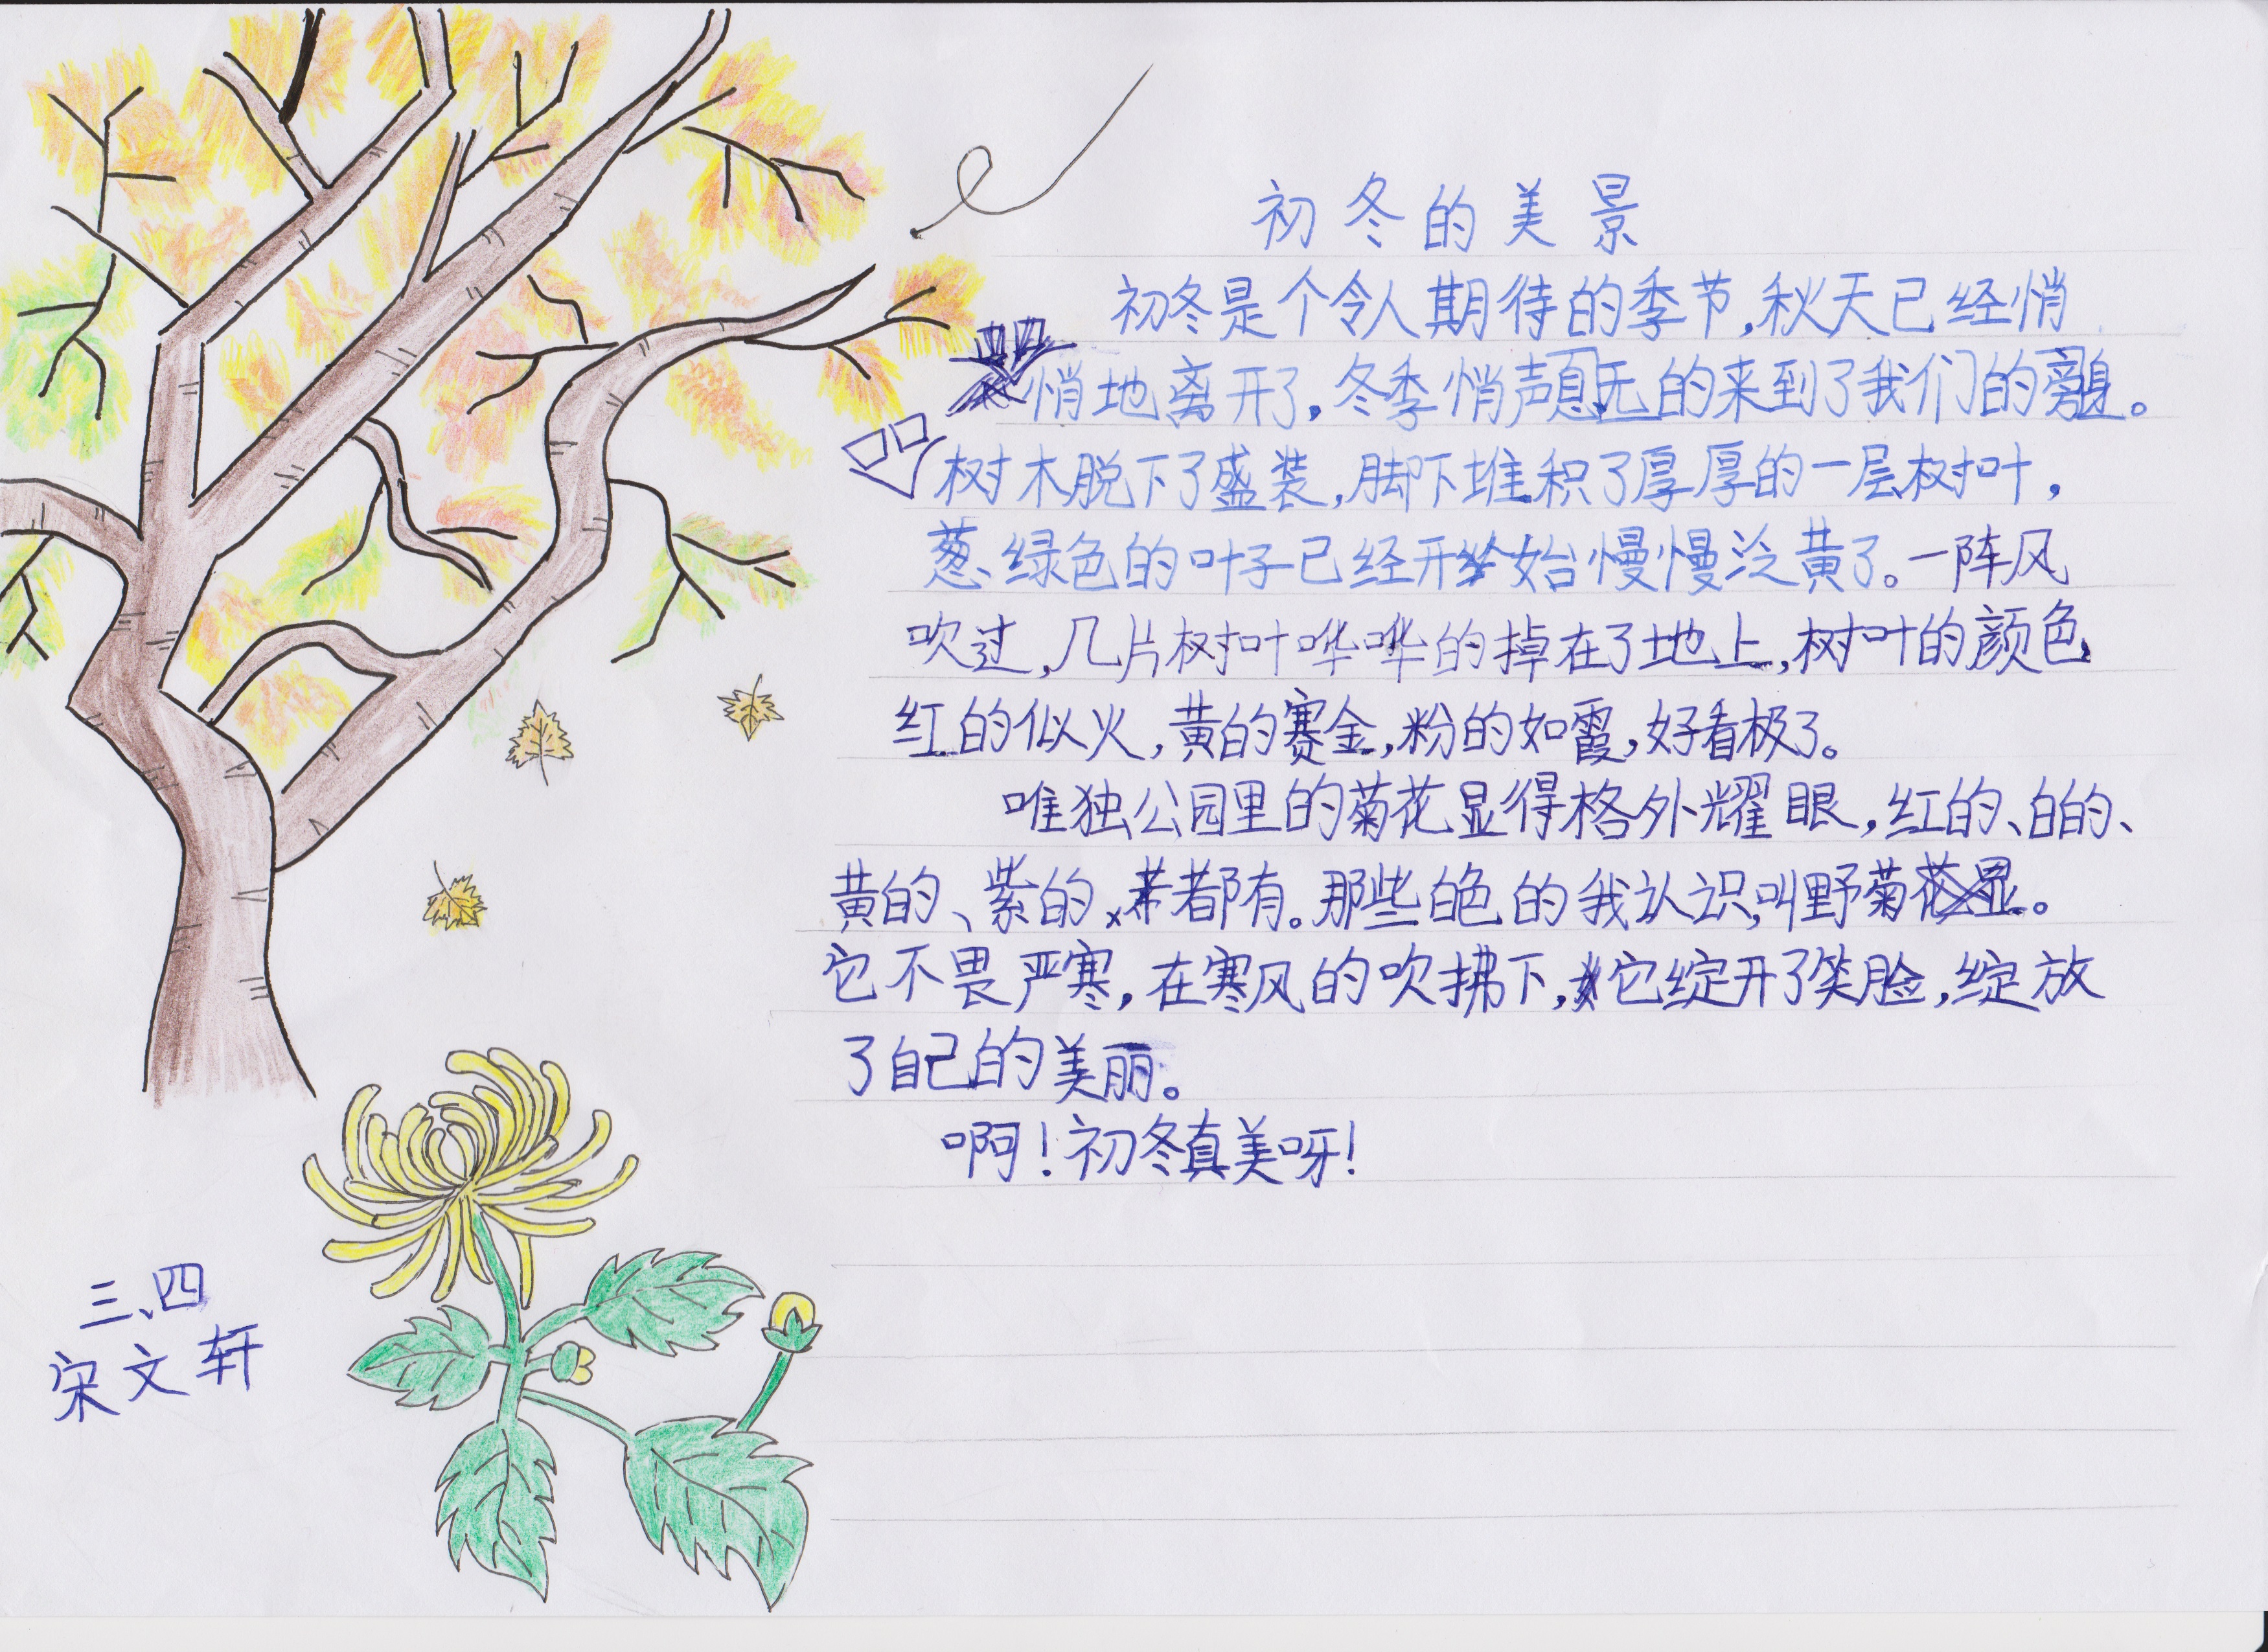 初冬的美景
初冬是个令人期待的季节,秋天已经悄
悄地离开了,冬季悄声息无的来到了我们的身。
树木脱下了盛装,脚下堆积了厚厚的一层树叶,
葱绿色的叶子已经开始慢慢泛黄了。一阵风
吹过,几片树叶哗哗的掉在了地上,树叶的颜色
红的似火,黄的赛金,粉的如霞,好看极了。
唯独公园里的菊花显得格外耀眼,红的、白的、
黄的、紫的,都有。那些白色的我认识,叫野菊。
它不畏严寒,在寒风的吹拂下,它绽开了笑脸,绽放
了自己的美丽。
啊!初冬真美呀!
三、四
宋文轩